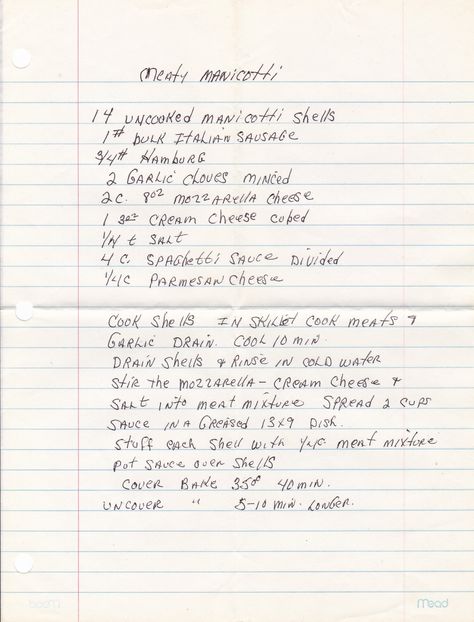 Meaty Manicotti
14 uncooked manicotti shells
1# bulk Italian sausage
3/4# Hamburg
2 Garlic cloves minced
2 c. 8oz mozzarella cheese
1 3oz cream cheese cubed
1/4 t salt
4 c. spaghetti sauce divided
1/4 c parmesan cheese
Cook shells In skillet cook meats &
Garlic Drain. Cool 10 min.
Drain shells & Rinse in cold water
Stir the mozzarella - cream cheese &
salt into meat mixture Spread 2 cups
sauce in a greased 13x9 Dish.
Stuff each shell with 1/4 c meat mixture
Put sauce over shells
Cover Bake 350° 40 min.
uncover " 5-10 min. longer.
Mead